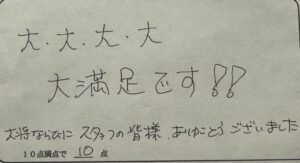 大・大・大・大
大満足です!!
大将ならびに スタッフの皆様、ありがとうございました
10点満点で 10 点